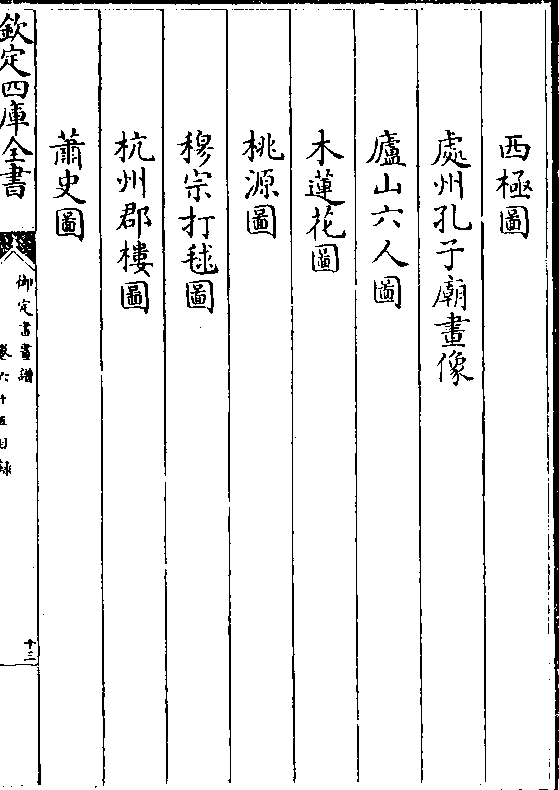 西極圖
處州孔子廟畫像
廬山六人圖
木蓮花圖
桃源圖
穆宗打毬圖
杭州郡樓圖
蕭史圖
欽定四庫全書
御定書畫譜
卷六十五目録
十三